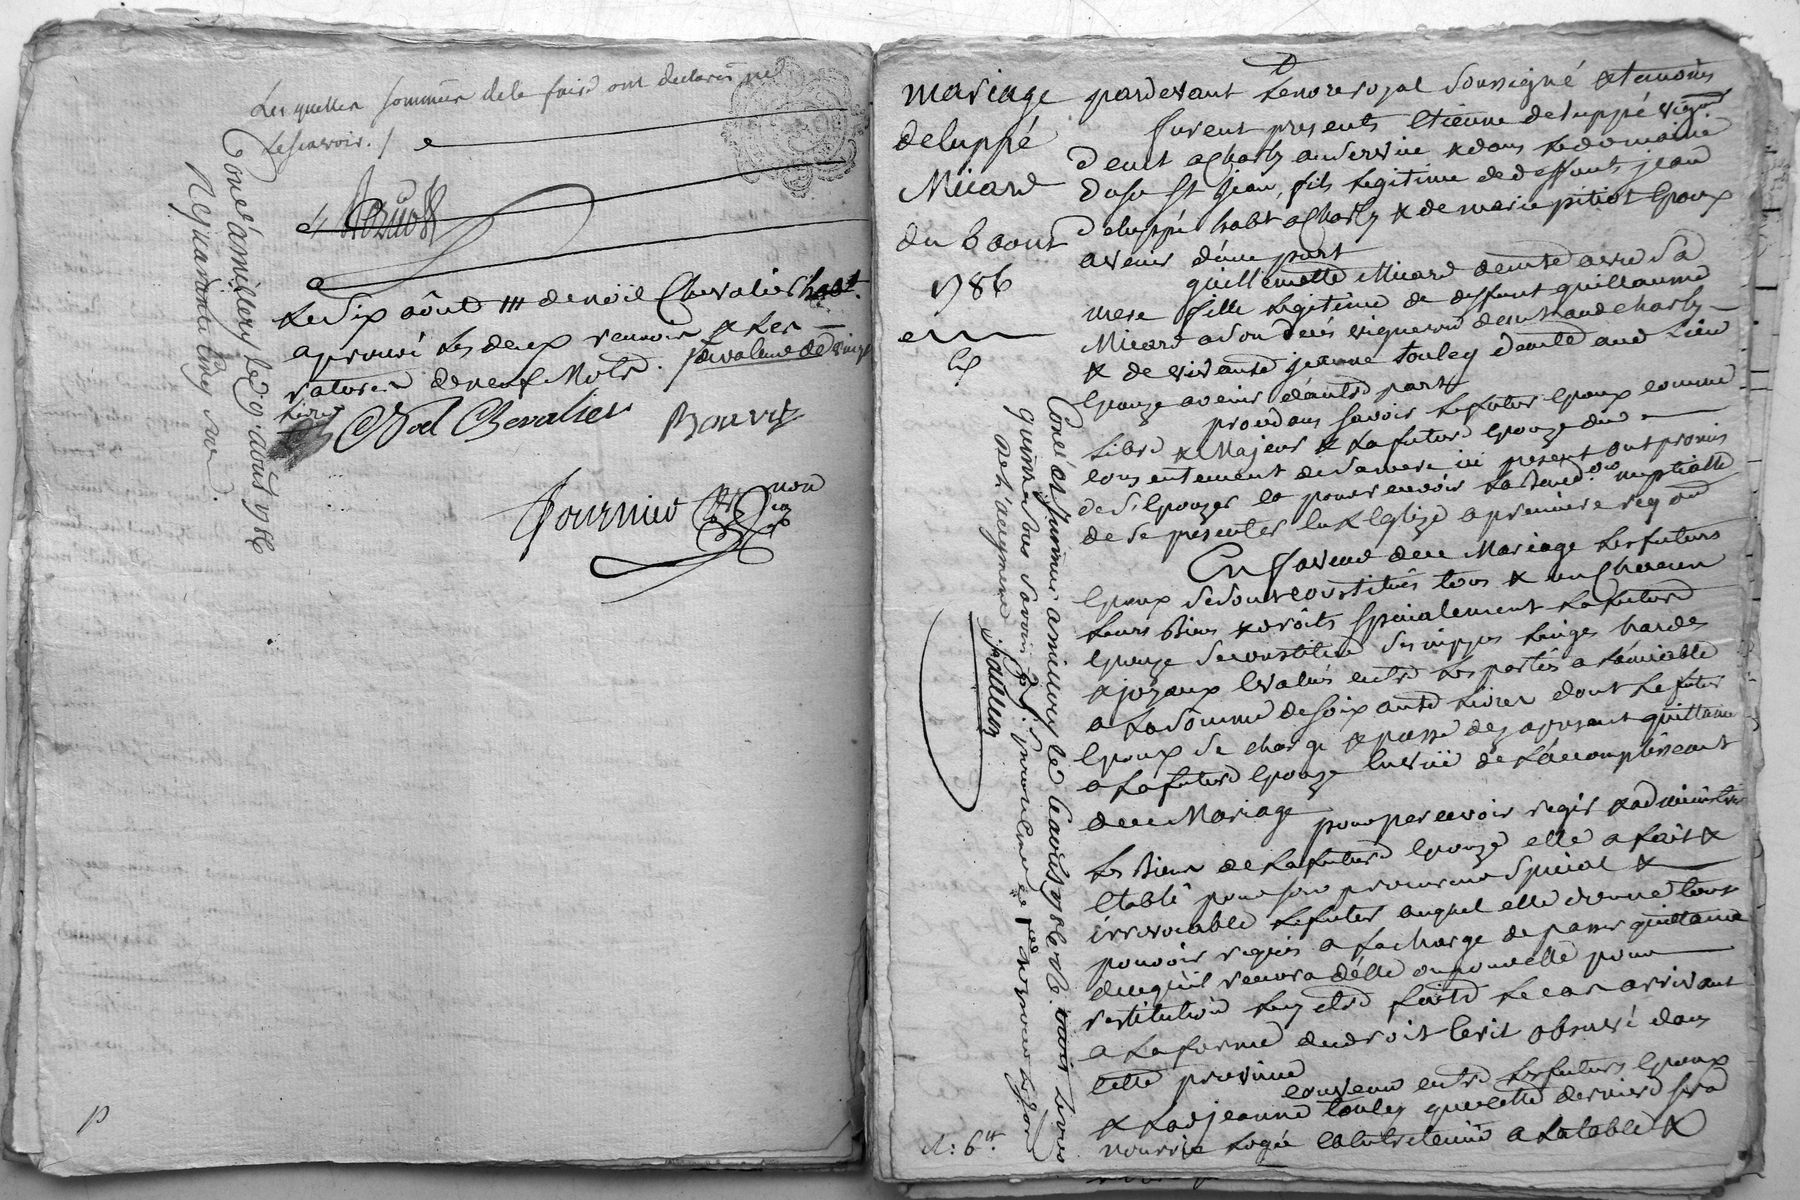 Les quelles sommées de le faire ont declaré ne
le scavoir. /
Le six aôut /// de noël Chevalier habt.
aprouvé les deux renvois & les
ratures de neuf mots. sa valeur de vingt
livres
Noel Chevalier Bouvry
Fournier
Conlé a millery le 9. août 1786
R quarante cinq sols.
p
mariage
deluppé
Micard
du 6 aout
1786
pardevant le nore royal soussigné & temoins
furent presents Etienne deluppé vign
demt a Charly au service & dans le domaine
du sr St Jean, fils legitime de deffunt jean
deluppé habt a Charly & de marie pitiot Epoux
avenir d'une part
guillemette Micard demte avec sa
mere fille legitime de deffunt guillaume
Micard a son deces vigneron demeurand Charly
& de vivante jeanne touley demte aud lieu
Epouze avenir d'autre part
procedans savoir le futur Epoux comme
libre & Majeur & la future Epouze du
consentement de sa mere ici present ont promis
de s'Epouzer et pour recevoir la bened.on nuptialle
de se presenter en l'Eglize a premiere reqon
En faveur de ce Mariage les futurs
Epoux se sont constitués tous & un Chacun
leurs Biens & droits specialement la future
Epouze se constitue ses nippes linges hardes
& joyaux Evalués entre les parties a l'amiable
a la sômme de soixante livres dont le futur
Epoux se charge & passe des apresent quittance
a la future Epouze en vuë de l'accomplissemt
de ce Mariage
pour percevoir regir & administrer
les Biens de la future Epouze elle a fait &
Etabli pour son procureur special &
irrevocable le futur auquel elle donne tout
pouvoir requis a la charge de passer quittance
de ce qu'il recevra d'elle ou pour elle pour
restitution luy etre faite le cas arrivant
a la forme du droit Ecrit observé dans
cette province
convenu entre les futurs Epoux
& lad jeanne touley que cette derniere sera
nourrie logée et entretenüe a la table &
Conlé et insinué a millery le 14 août 1786 R. Six. huit livres
quinze sols savoir
de l'augment
R: 6tt